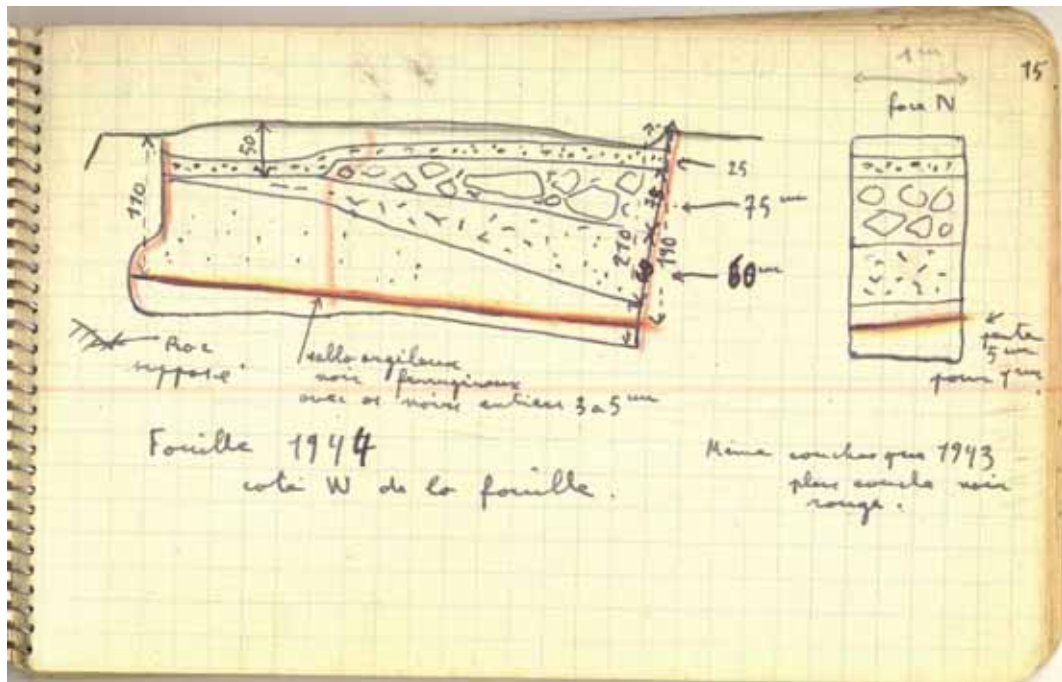 15
1 m
face N
50
110
25
75 cm
75
210
190
60
60 cm
Roc
supposé
sable argileux
noir ferrugineux
avec os noirs entiers 3 a 5 cm
pente
5 cm
pour 1 m
Fouille 1944
coté W de la fouille.
Même couches que 1943
plus couche noir
rouge.